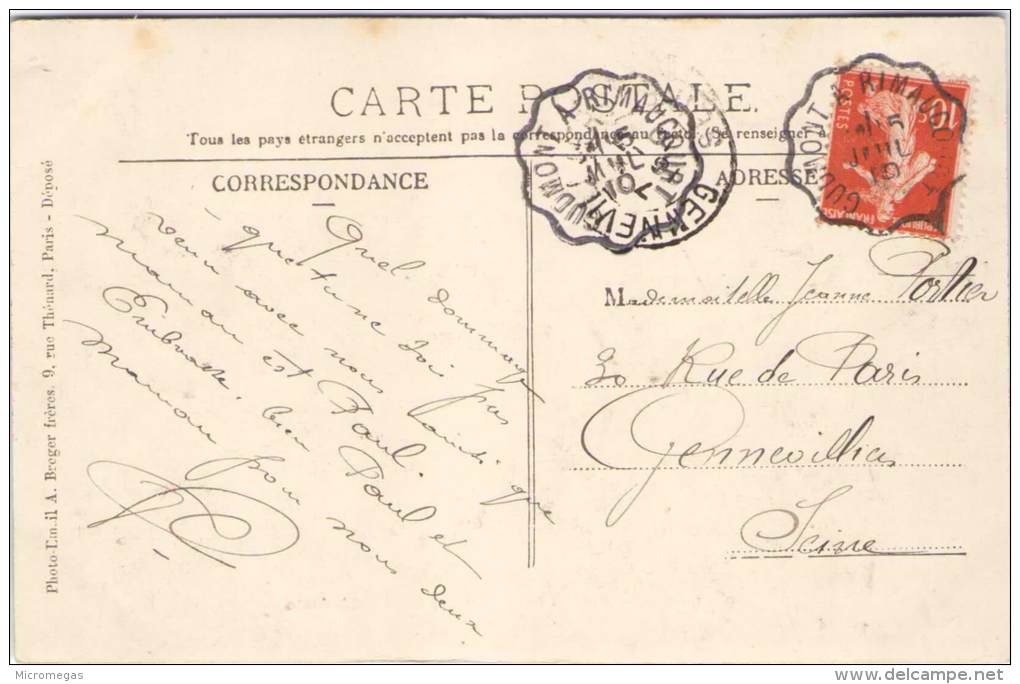 CARTE POSTALE.
Tous les pays étrangers n'acceptent pas la correspondance au recto. (Se renseigner à
CORRESPONDANCE
ADRESSE
Quel dommage
que tu ne sois pas
venu avec nous ainsi que
maman et Paul.
Embrasse bien Paul et
Maman pour nous deux
Mademoiselle Jeanne Portier
30 Rue de Paris
Gennevilliers
Seine
GUDMONT A RIMAUCOURT
15
JUIL
10
GENNEVILLIERS
GUDMONT A RIMAUCOURT
15
JUIL
10
POSTES
10c
Photo-Email A. Breger frères. 9, rue Thénard, Paris - Déposé
Micromegas
delcampe.net